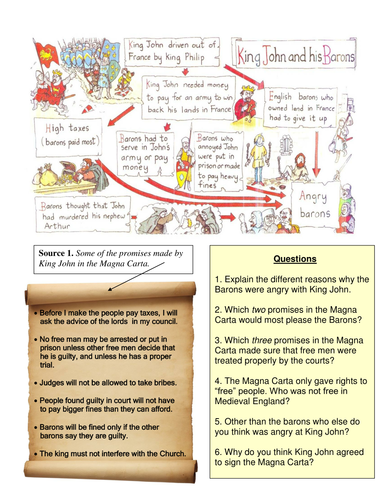 King John driven out of
France by King Philip
King John and his Barons
King John needed money
to pay for an army to win
back his lands in France
English barons who
owned land in France
had to give it up
High taxes
(barons paid most)
Barons had to
serve in John's
army or pay
money
Barons who
annoyed John
were put in
prison or made
to pay heavy
fines
Barons thought that John
had murdered his nephew
Arthur
Angry
barons
Source 1. Some of the promises made by
King John in the Magna Carta.
• Before I make the people pay taxes, I will
ask the advice of the lords in my council.
• No free man may be arrested or put in
prison unless other free men decide that
he is guilty, and unless he has a proper
trial.
• Judges will not be allowed to take bribes.
• People found guilty in court will not have
to pay bigger fines than they can afford.
• Barons will be fined only if the other
barons say they are guilty.
• The king must not interfere with the Church.
Questions
1. Explain the different reasons why the
Barons were angry with King John.
2. Which two promises in the Magna
Carta would most please the Barons?
3. Which three promises in the Magna
Carta made sure that free men were
treated properly by the courts?
4. The Magna Carta only gave rights to
"free" people. Who was not free in
Medieval England?
5. Other than the barons who else do
you think was angry at King John?
6. Why do you think King John agreed
to sign the Magna Carta?